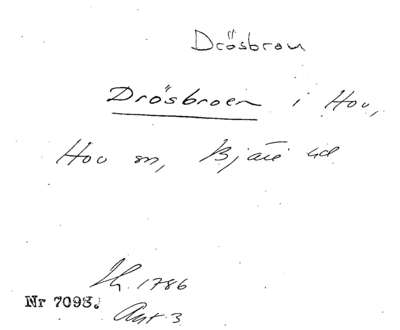 Drösbron
Drösbroen i Hov,
Hov sn, Bjäre hd
Lh. 1786
Nr 7098.
Akt 3